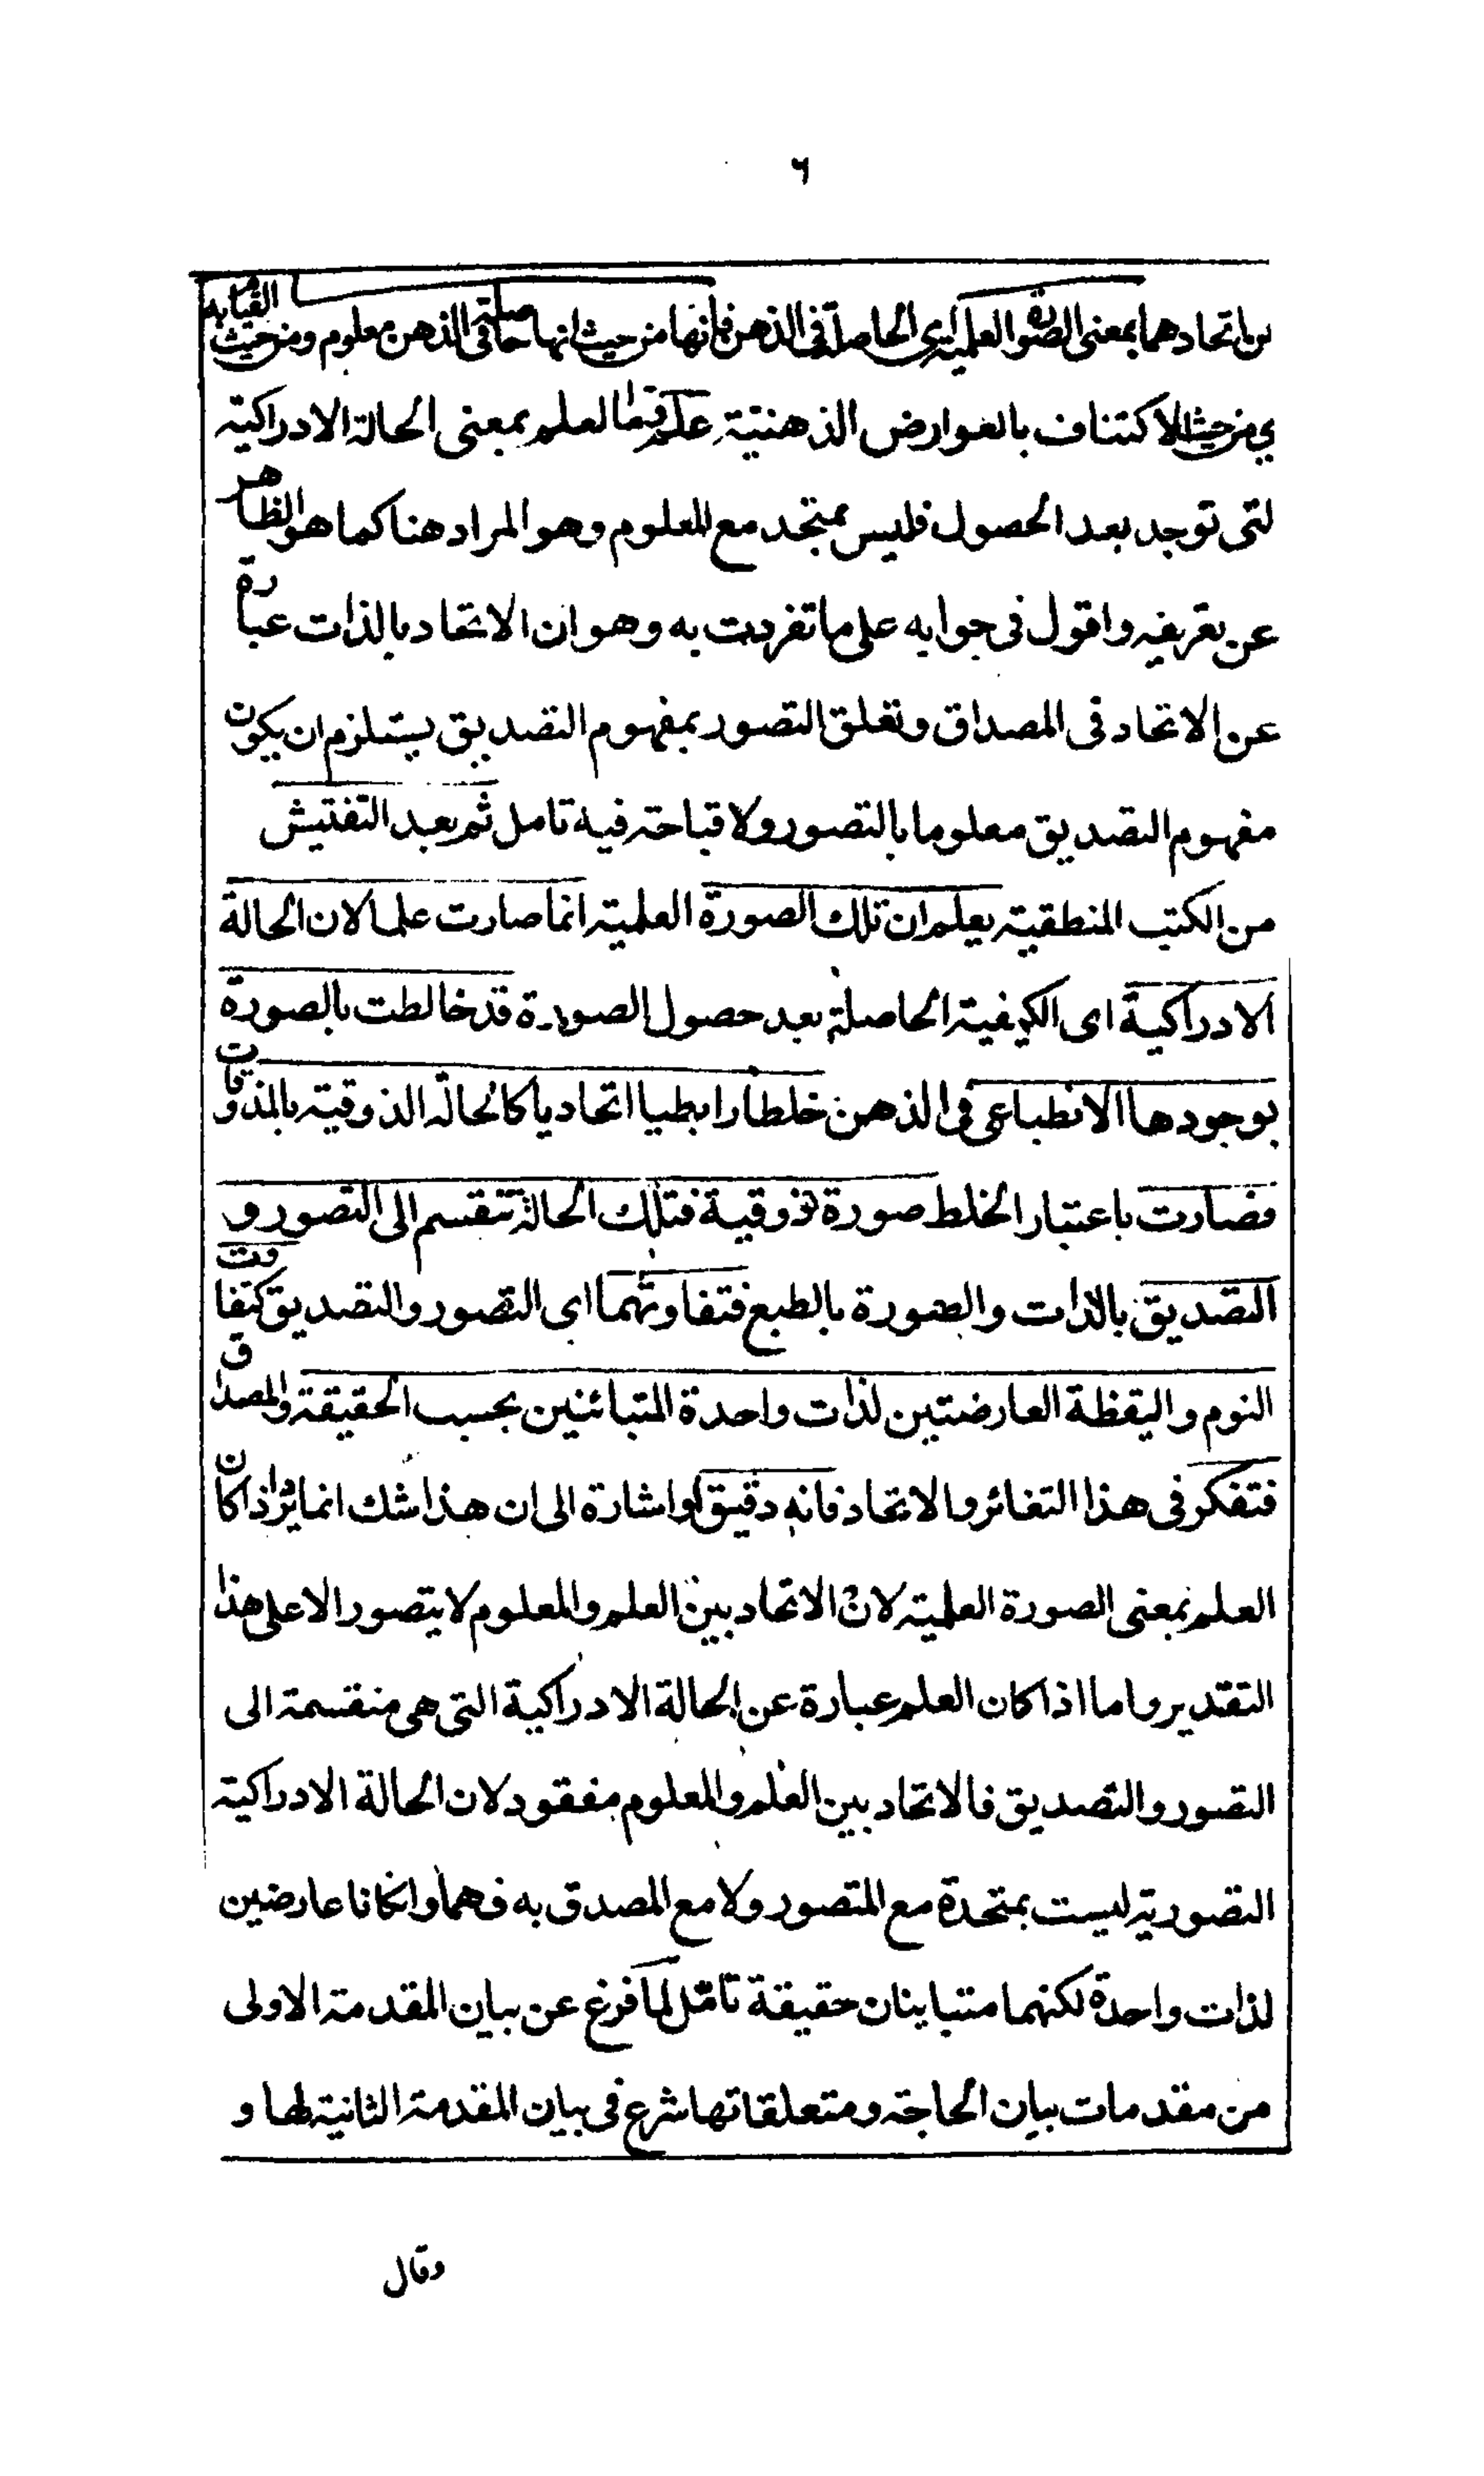 ٦
من اتحادهما بمعنى الصورة العلمية اى الحاصلة فى الذهن فانها من حيث انها حاصلة فى الذهن معلوم ومن حيث القيام به
اى من حيث الاكتناف بالعوارض الذهنية علم واما العلم بمعنى الحالة الادراكية
التى توجد بعد الحصول فليس بمتحد مع المعلوم وهو المراد هنا كما هو الظاهر
عن تعريفه واقول فى جوابه على ما تفردت به وهو ان الاتحاد بالذات عبارة
عن الاتحاد فى المصداق وتعلق التصور بمفهوم التصديق يستلزم ان يكون
مفهوم التصديق معلوما بالتصور ولا قباحة فيه تامل ثم بعد التفتيش
من الكتب المنطقية يعلم ان تلك الصورة العلمية انما صارت علما لان الحالة
الادراكية اى الكيفية الحاصلة بعد حصول الصورة قد خالطت بالصورة
بوجودها الانطباعى فى الذهن خلطا رابطيا اتحاديا كالحالة الذوقية بالمذوقات
فصارت باعتبار الخلط صورة ذوقية فتلك الحالة تنقسم الى التصور و
التصديق بالذات والصورة بالطبع فتفاوتهما اى التصور والتصديق كتفاوت
النوم واليقظة العارضتين لذات واحدة المتبائنين بحسب الحقيقة والمصداق
فتفكر فى هذا التغائر والاتحاد فانه دقيق او اشارة الى ان هذا شك انما اذا كان
العلم بمعنى الصورة العلمية لان الاتحاد بين العلم والمعلوم لا يتصور الا على هذا
التقدير واما اذا كان العلم عبارة عن الحالة الادراكية التى هى منقسمة الى
التصور والتصديق فالاتحاد بين العلم والمعلوم مفقود لان الحالة الادراكية
التصورية ليست بمتحدة مع المتصور ولا مع المصدق به فهما وانكانا عارضين
لذات واحدة لكنهما متباينان حقيقة تامل لما فرغ عن بيان المقدمة الاولى
من مقدمات بيان الحاجة ومتعلقاتها شرع فى بيان المقدمة الثانية لها و
وقال